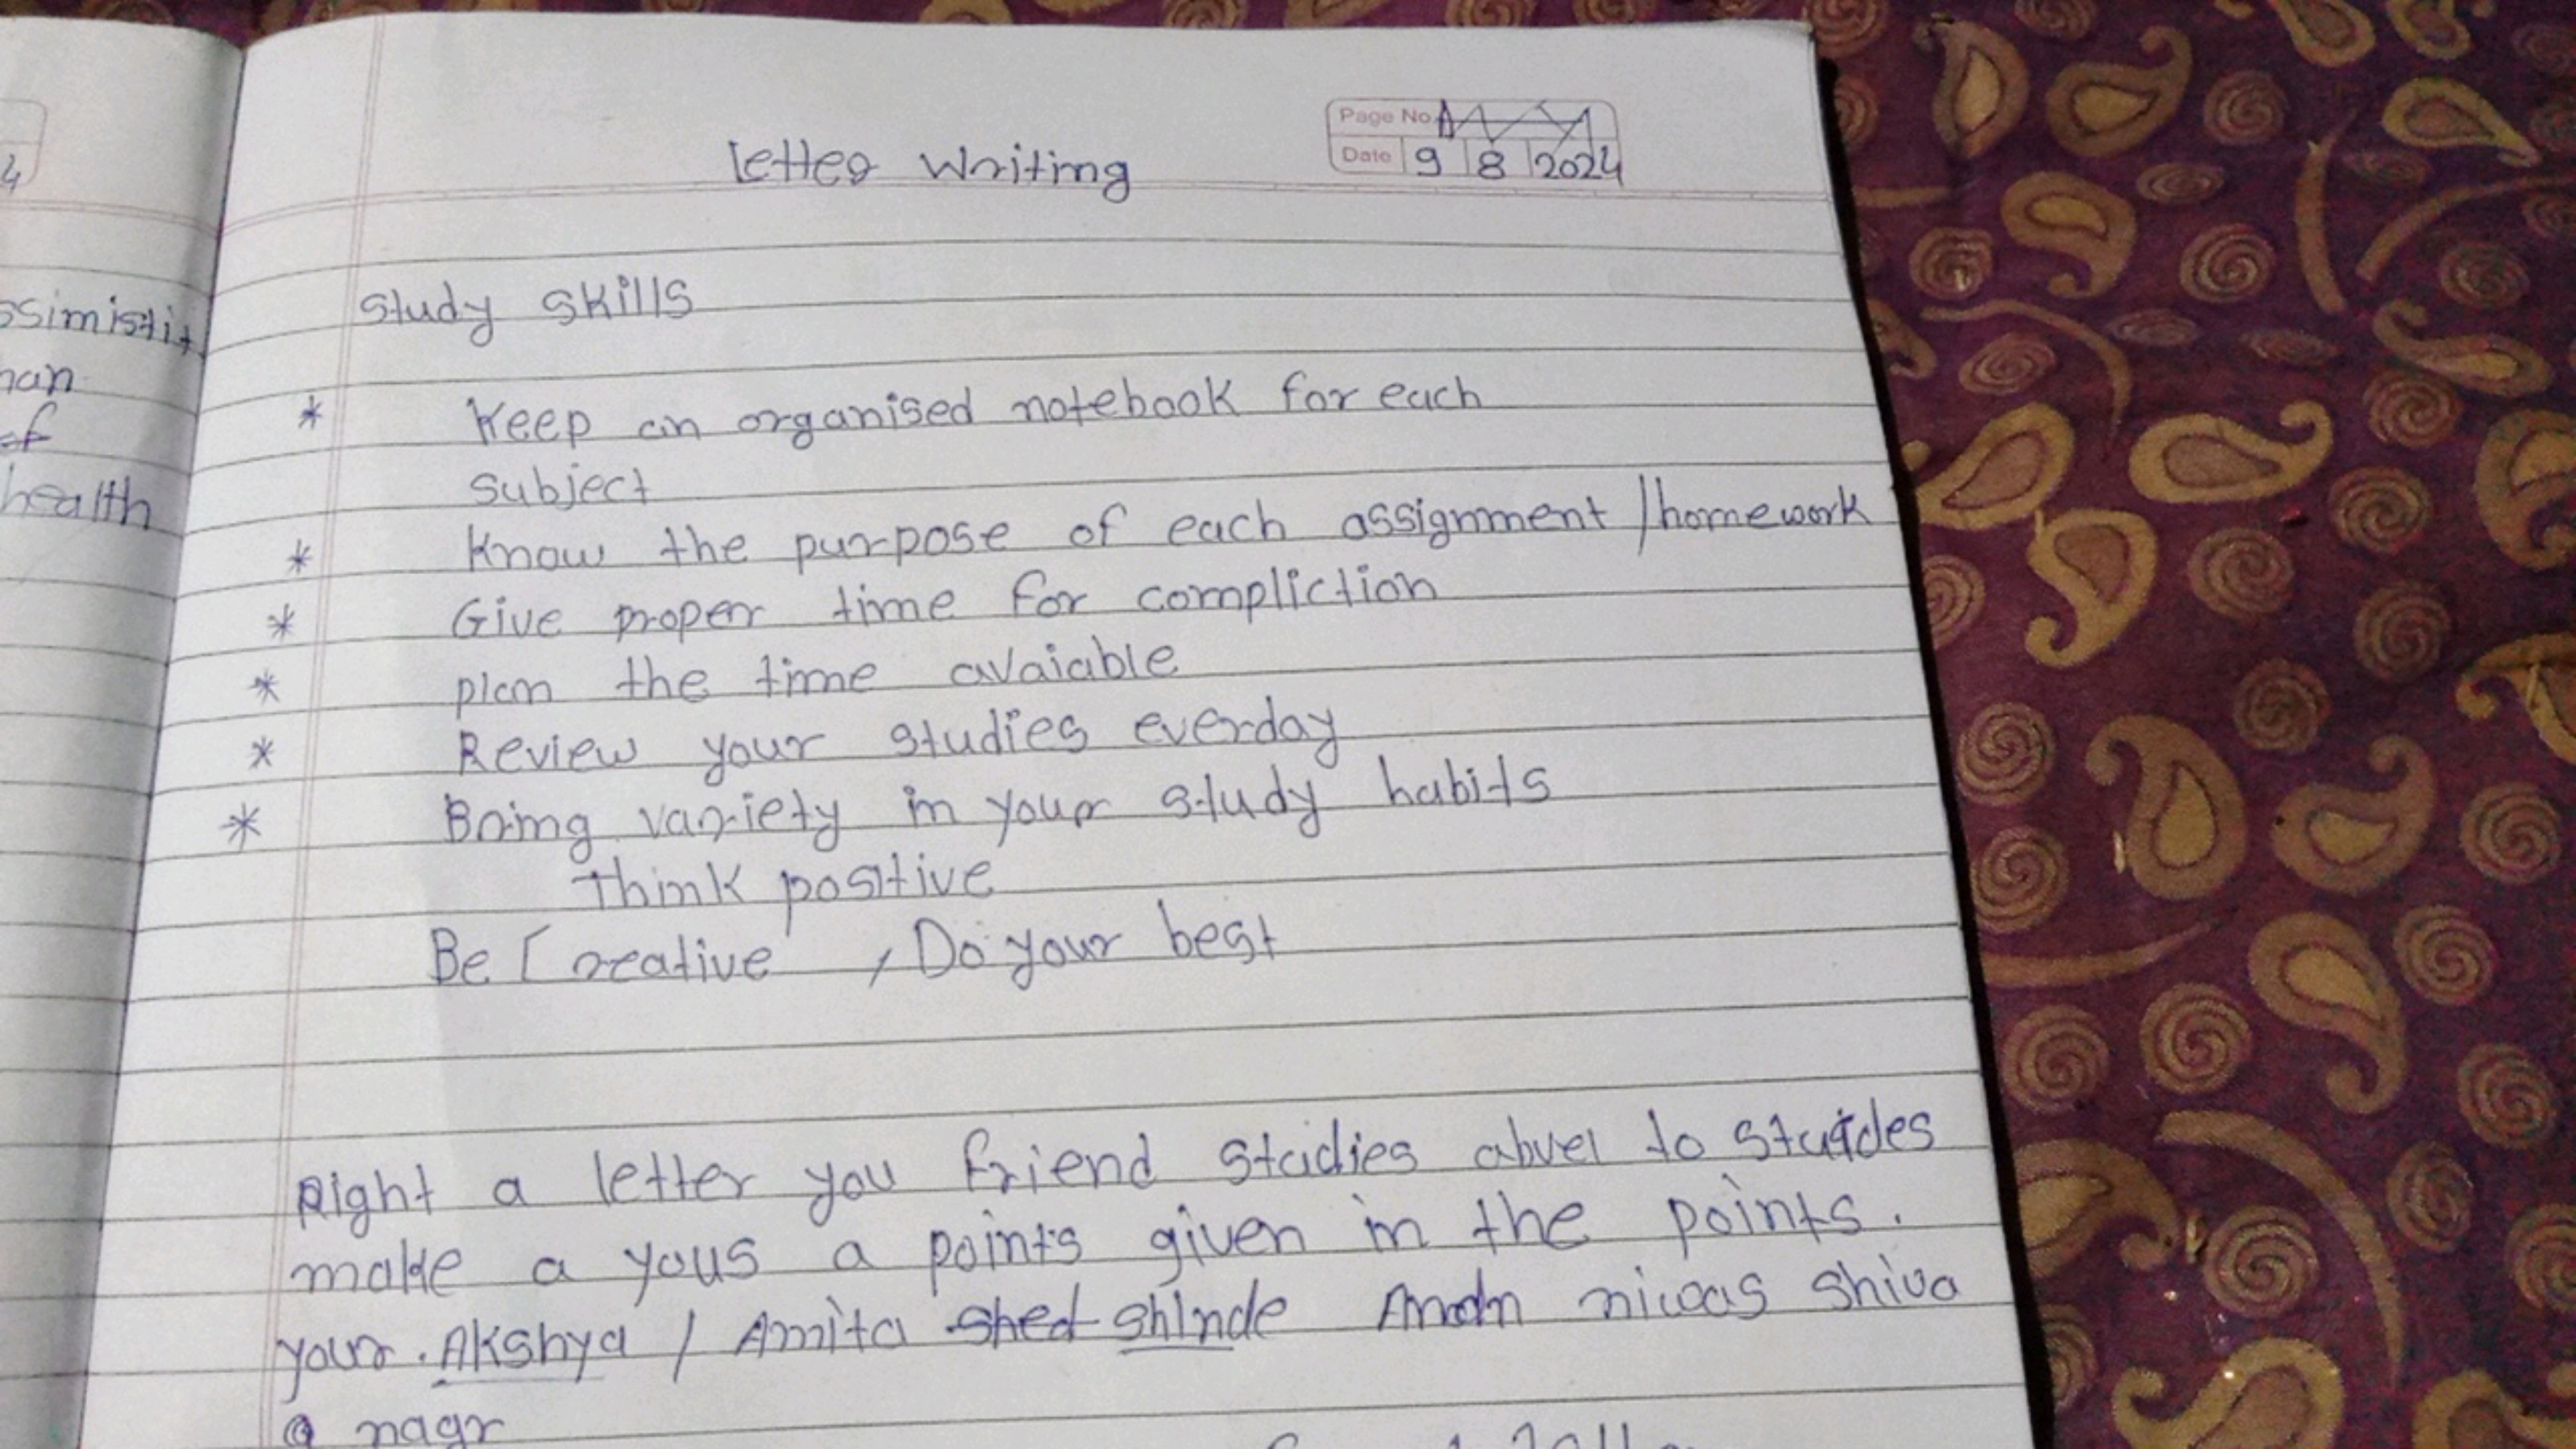 4
Page No.
Letter Writing
Date 9 8 2024
ssimistit
study skills
han
* Keep an organised notebook for each
of
subject
health
* Know the purpose of each assignment / homework
* Give proper time for compliction
* plan the time avaiable
* Review your studies everday
* Bring variety in your study habits
Think positive
Be Creative , Do your best
Right a letter you friend studies abvel to
make a yous a points given in the points.
your . Akshya / Amita shed shinde niwas shiva
nagr